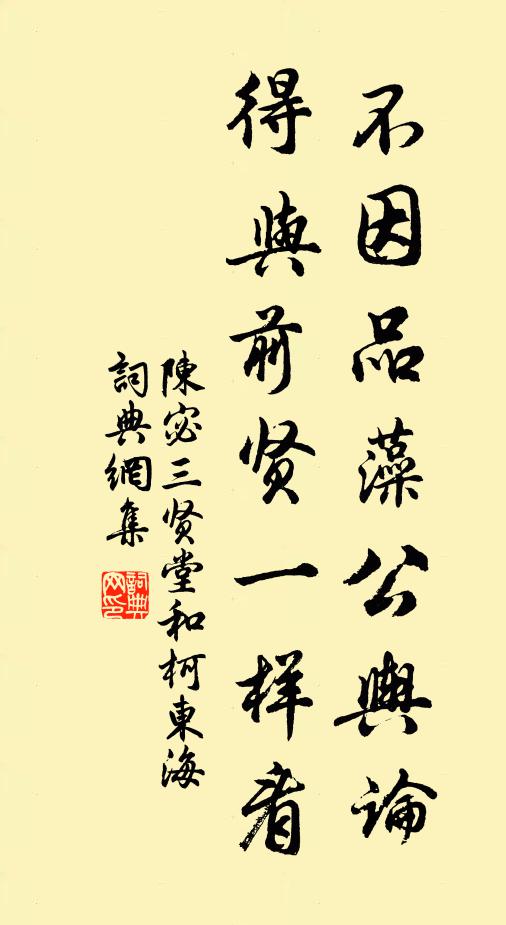 不因品藻公輿論
得與前贤一样看
陳宓三贤堂和柯東海
詞典網集
詞典
网印